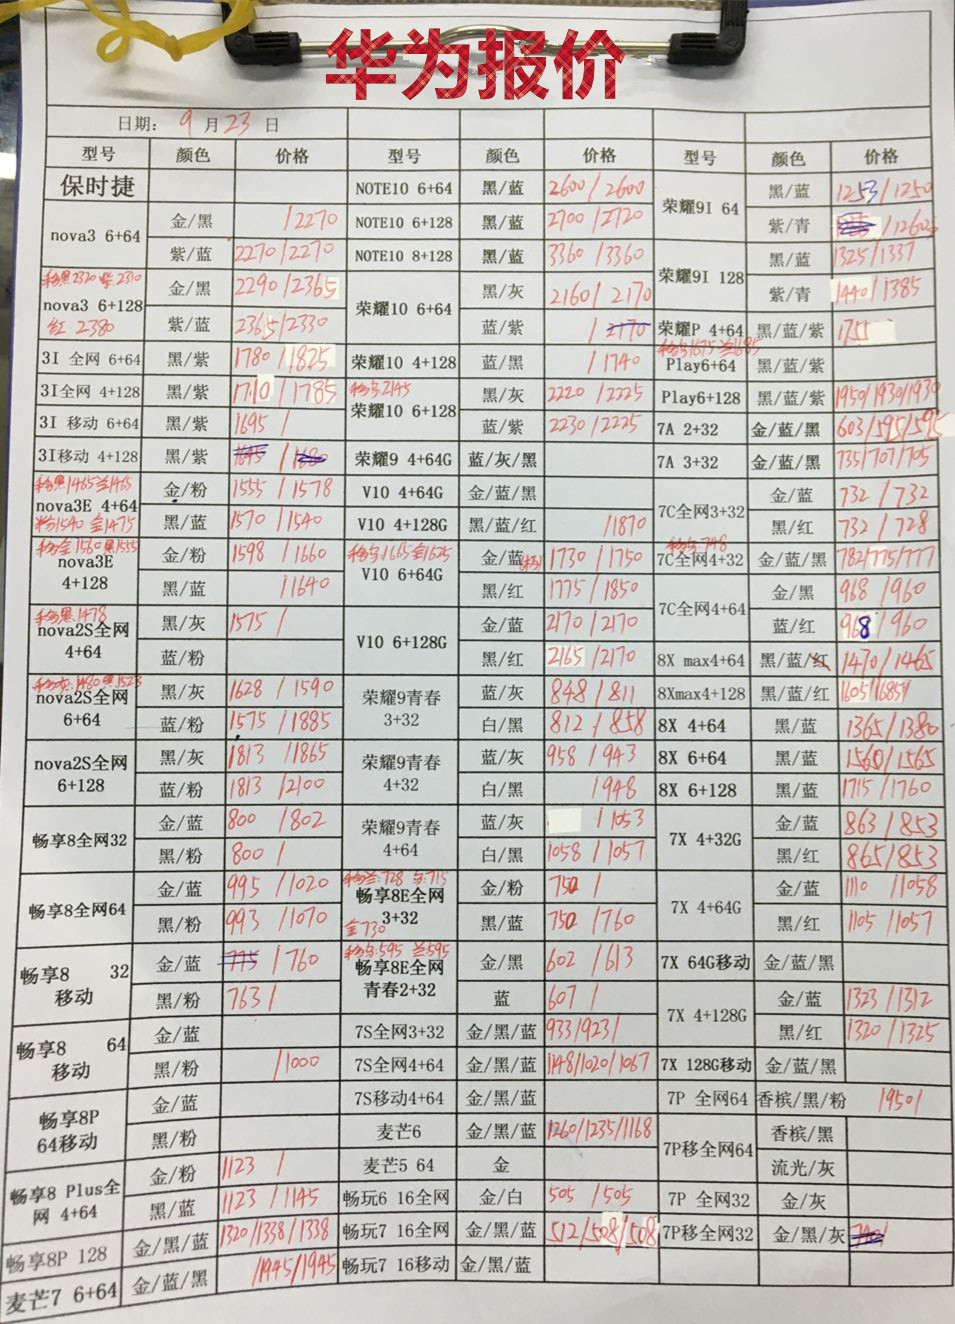 华为报价
日期: 9 月 23 日
型号 颜色 价格 型号 颜色 价格 型号 颜色 价格
保时捷 NOTE10 6+64 黑/蓝 2600/2600 荣耀9I 64 黑/蓝 1253/1250
nova3 6+64 金/黑 /2270 NOTE10 6+128 黑/蓝 2700/2720 紫/青
紫/蓝 2270/2270 NOTE10 8+128 黑/蓝 3360/3360 荣耀9I 128 黑/蓝 1325/1337
移黑2320 紫2310
nova3 6+128 金/黑 2290/2365 荣耀10 6+64 黑/灰 2160/2170 紫/青 1440/1385
红 2380 紫/蓝 2365/2330 蓝/紫 /2170 荣耀P 4+64 黑/蓝/紫 1755
3I 全网 6+64 黑/紫 1780/1825 荣耀10 4+128 蓝/黑 /1740 Play6+64 黑/蓝/紫
3I全网 4+128 黑/紫 1710/1785 荣耀10 6+128 黑/灰 2220/2225 Play6+128 黑/蓝/紫 1950/1930/1930
3I 移动 6+64 黑/紫 1695/ 蓝/紫 2230/2225 7A 2+32 金/蓝/黑 603/595/595
3I移动 4+128 黑/紫 1645/1680 荣耀9 4+64G 蓝/灰/黑 7A 3+32 金/蓝/黑 735/707/705
移黑1465 兰1465
nova3E 4+64 金/粉 1555/1578 V10 4+64G 金/蓝/黑 7C全网3+32 金/蓝 732/732
粉1540 金1475 黑/蓝 1570/1540 V10 4+128G 黑/蓝/红 /1870 黑/红 732/728
移金1560 黑1555 移动748
nova3E 4+128 金/粉 1598/1660 V10 6+64G 金/蓝 1730/1750 7C全网4+32 金/蓝/黑 782/775/777
黑/蓝 /1640 黑/红 1775/1850 7C全网4+64 金/黑 968/960
移动黑1478
nova2S全网 4+64 黑/灰 1575/ V10 6+128G 金/蓝 2170/2170 蓝/红 968/960
蓝/粉 黑/红 2165/2170 8X max4+64 黑/蓝/红 1470/1465
移动灰:1480 黑1523
nova2S全网 6+64 黑/灰 1628/1590 荣耀9青春 3+32 蓝/灰 848/811 8Xmax4+128 黑/蓝/红 1605/1685/
蓝/粉 1575/1885 白/黑 812/858 8X 4+64 黑/蓝 1365/1380
nova2S全网 6+128 黑/灰 1813/1865 荣耀9青春 4+32 蓝/灰 958/943 8X 6+64 黑/蓝 1560/1565
蓝/粉 1813/2100 白/黑 /948 8X 6+128 黑/蓝 1715/1760
畅享8全网32 金/蓝 800/802 荣耀9青春 4+64 蓝/灰 /1053 7X 4+32G 金/蓝 863/853
黑/粉 800/ 白/黑 1058/1057 黑/红 865/853
移动兰:728 黑:715
畅享8全网64 金/蓝 995/1020 畅享8E全网 3+32 金/粉 750/ 7X 4+64G 金/蓝 1110/1058
黑/粉 993/1070 金730 黑/蓝 750/760 黑/红 1105/1057
移动:595 兰595
畅享8 32 移动 金/蓝 775/760 畅享8E全网 青春2+32 金/黑 602/613 7X 64G移动 金/蓝/黑
黑/粉 763/ 蓝 607/ 7X 4+128G 金/蓝 1323/1312
畅享8 64 移动 金/蓝 7S全网3+32 金/黑/蓝 933/923/ 黑/红 1320/1325
黑/粉 /1000 7S全网4+64 金/黑/蓝 1148/1020/1067 7X 128G移动 金/蓝/黑
畅享8P 64移动 金/蓝 7S移动4+64 金/黑/蓝 7P 全网64 香槟/黑/粉 1950/
黑/粉 麦芒6 金/黑/蓝 1260/1235/1168 7P移全网64 香槟/黑
畅享8 Plus全网 4+64 金/粉 1123/ 麦芒5 64 金 流光/灰
黑/蓝 1123/1145 畅玩6 16全网 金/白 505/505 7P 全网32 金/灰
畅享8P 128 金/黑/蓝 1320/1338/1338 畅玩7 16全网 金/黑/蓝 512/508/508 7P移全网32 金/黑/灰
麦芒7 6+64 金/蓝/黑 /1945/1945 畅玩7 16移动 金/黑/蓝